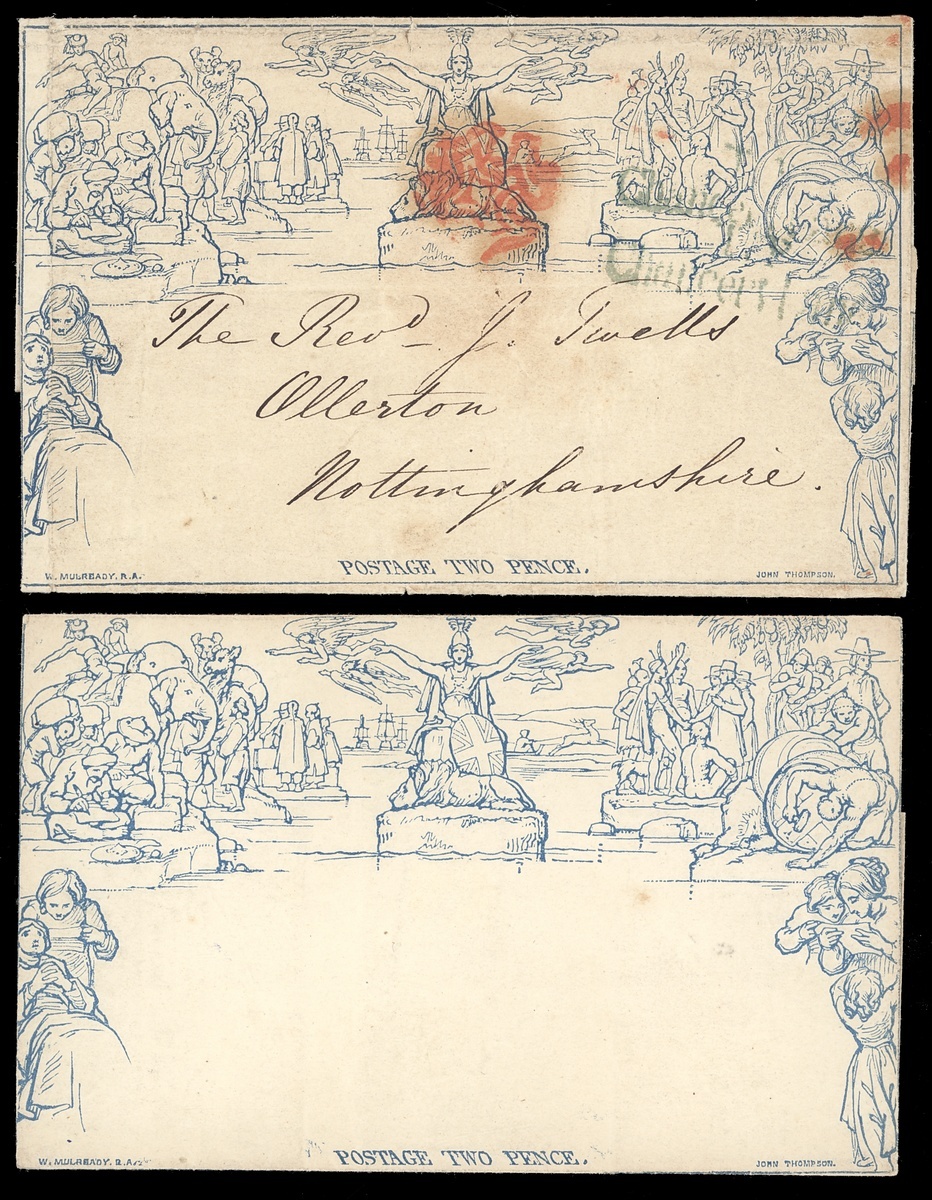 The Revd J. Twells
Ollerton
Nottinghamshire.
W. MULREADY, R.A.
POSTAGE TWO PENCE.
JOHN THOMPSON.
W. MULREADY, R.A.
POSTAGE TWO PENCE.
JOHN THOMPSON.